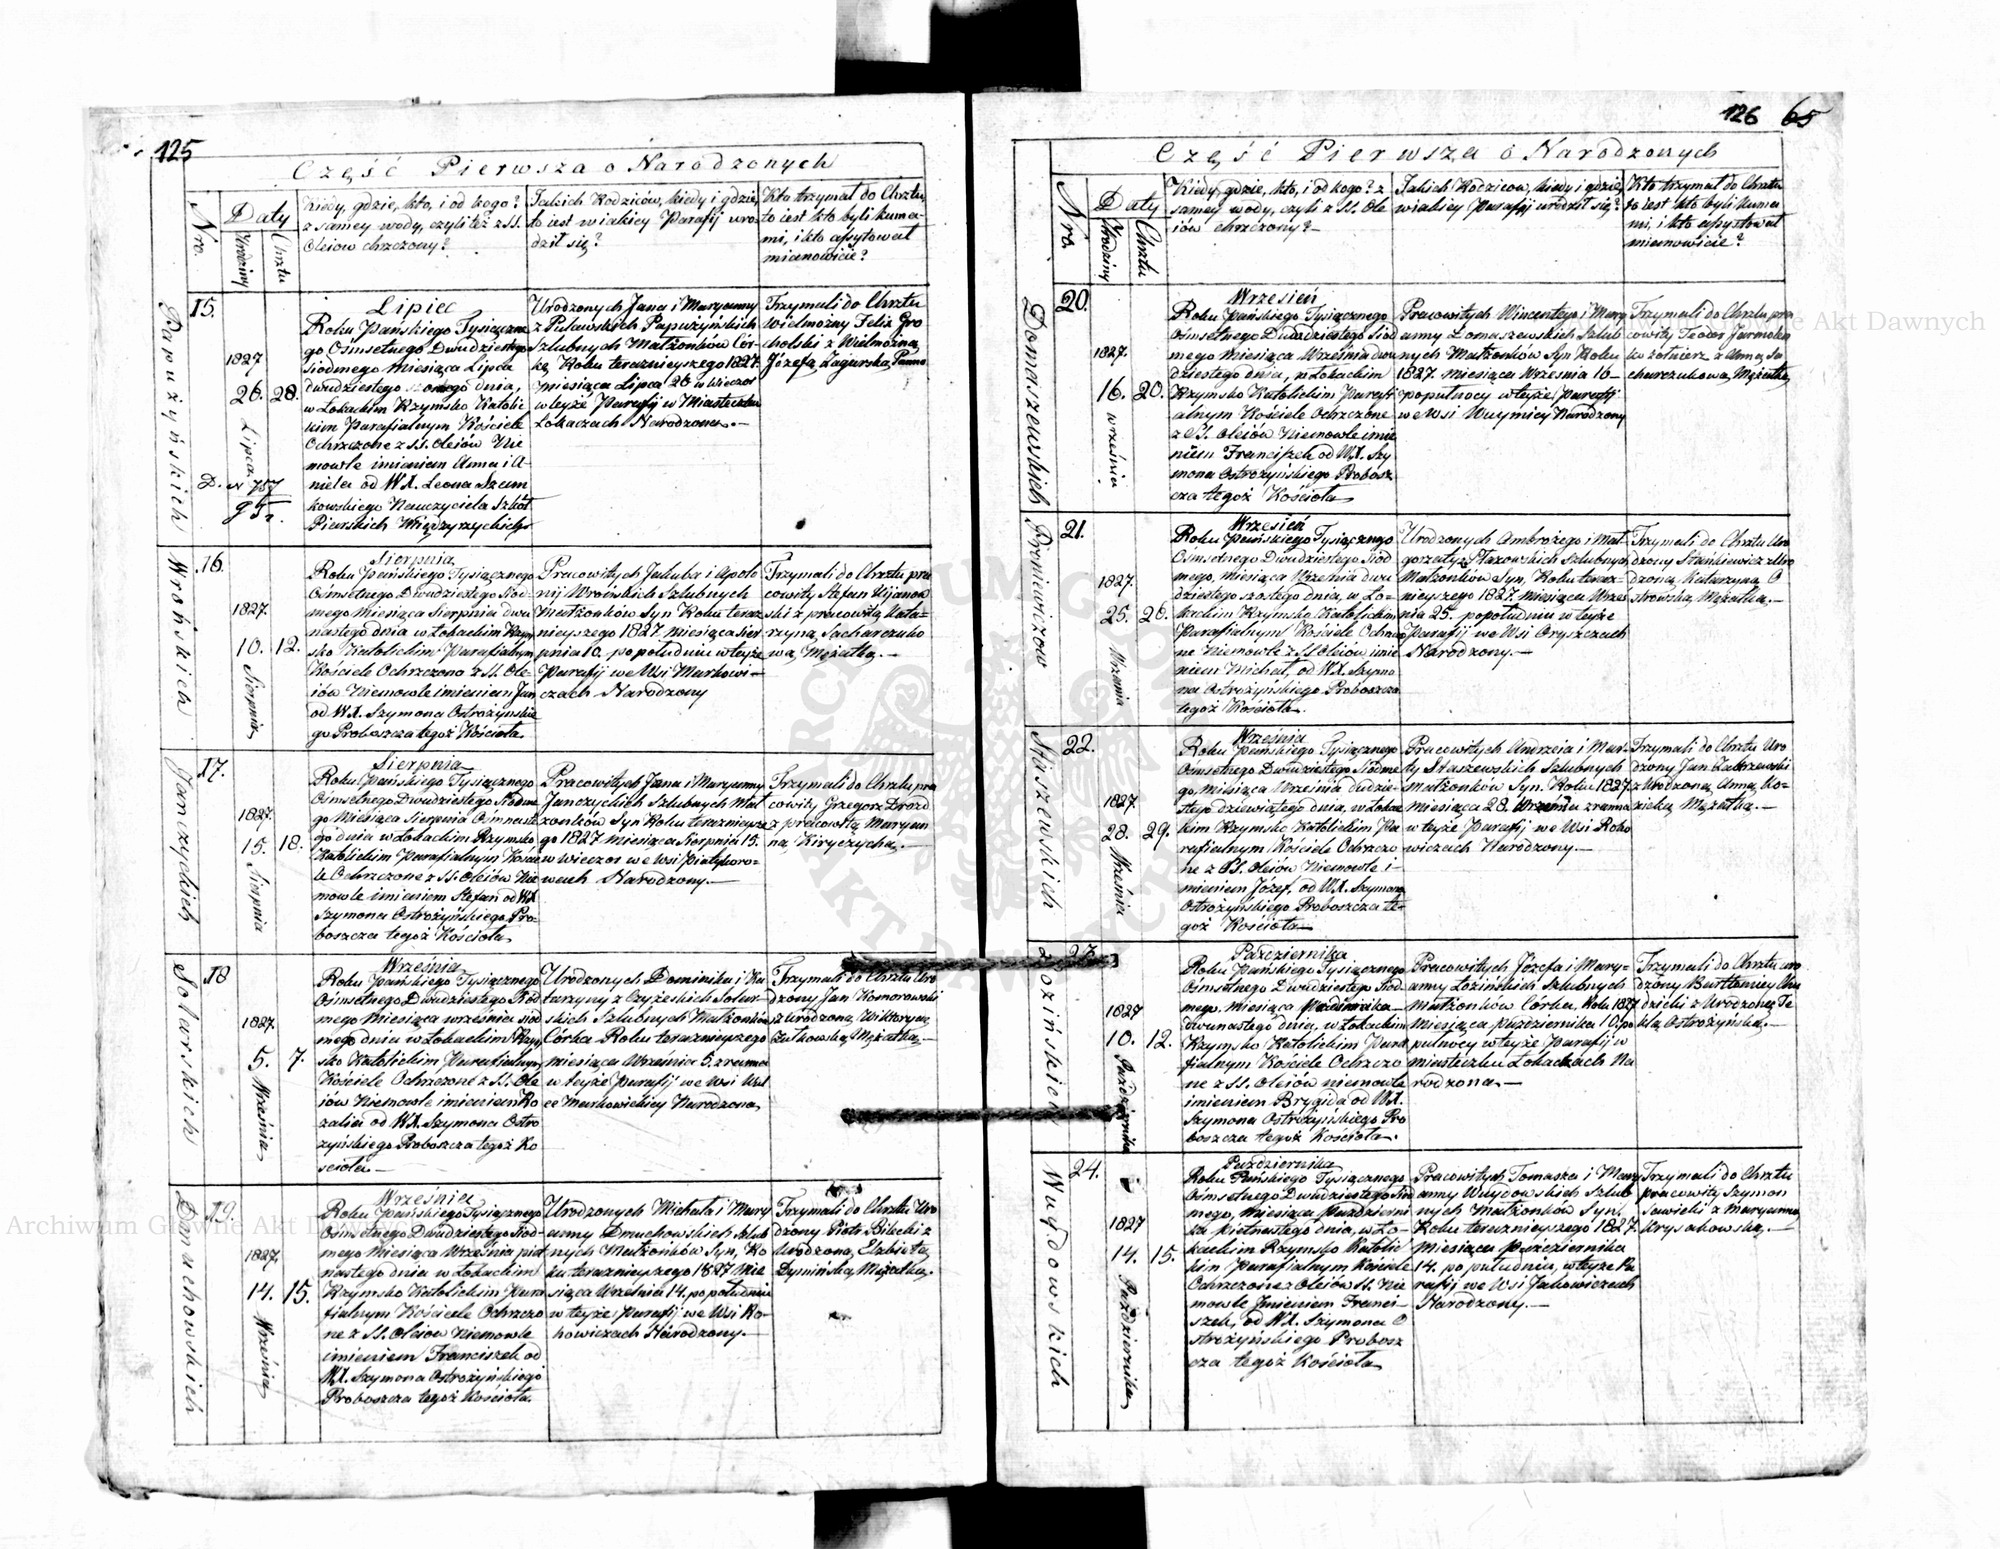 125
Część Pierwsza o Narodzonych
Nro.
Daty
Urodziny
Chrztu
Kiedy, gdzie, kto, i od kogo?
z samey wody, czyli też z SS.
Oleiow chrzczony?
Jakich Rodziców, kiedy i gdzie,
to iest w iakiey Parafij uro-
dził się?
Kto trzymał do Chrztu,
to iest kto byli kuma-
mi, i kto assystował
mianowicie?
Papużyńskich
15.
1827
26.
28.
Lipca
Lipiec
Roku Pańskiego Tysiączne
go Ośmsetnego Dwudziestego
Siodmego Miesiąca Lipca
dwudziestego osmego dnia,
w Łokackim Rzymsko Katolic
kim Parafialnym Kościele
Ochrzczone z SS. Oleiów Nie
mowle imieniem Anna i A-
niela od WX. Leona Szum
kowskiego Nauczyciela Szkół
Piarskich Międzyrzyckich
Urodzonych Jana i Maryanny
z Puławskich Papużyńskich
Szlubnych Małżonków Cór-
ka, Roku teraznieyszego 1827.
Miesiąca Lipca 26 w wieczor
w teyże Parafij w Miasteczku
Łokaczach Narodzona.—
Trzymali do Chrztu
Wielmożny Felix Gro
cholski z Wielmożną
Józefą Zagurską Panną
Wrońskich
16.
1827
10.
12.
Sierpnia
Sierpnia
Roku Pańskiego Tysiącznego
Ośmsetnego Dwudziestego Siód-
mego Miesiąca Sierpnia dwu
nastego dnia w Łokackim Rzym
sko Katolickim Parafialnym
Kościele Ochrzczono z SS. Ole-
iów Niemowle imieniem Jan
od WX. Szymona Ostrożyńskie
go Proboszcza tegoż Kościoła.
Pracowitych Jakuba i Apolo
nij Wrońskich Szlubnych
Małżonków Syn Roku teraz
nieyszego 1827. Miesiąca Sier
pnia 10. po południu w teyże
Parafij we Wsi Markowi-
czach Narodzony
Trzymali do Chrztu pra
cowity Stefan Kijanow
ski z pracowitą Kata-
rzyną Sacharczuko
wą Mężatką.—
Jamczyckich
17.
1827.
15.
18.
Sierpnia
Sierpnia
Roku Pańskiego Tysiącznego
Ośmsetnego Dwudziestego Siodme
go Miesiąca Sierpnia Ośmnaste
go dnia w Łokackim Rzymsko
Katolickim Parafialnym Koście
le Ochrzczone z SS. Oleiów Nie
mowle imieniem Stefan od WX.
Szymona Ostrożyńskiego Pro-
boszcza tegoż Kościoła.
Pracowitych Jana i Maryanny
Jamczyckich Szlubnych Mał
żonków Syn Roku teraznieysze
go 1827 Miesiąca Sierpnia 15.
w wieczor we Wsi Piatykoro-
wcach Narodzony.—
Trzymali do Chrztu pra
cowity Grzegorz Drozd
z pracowitą Maryan
ną Kiryczychą.—
Soharskich
18
1827.
5.
7.
Września
Września
Roku Pańskiego Tysiącznego
Ośmsetnego Dwudziestego Siód
mego Miesiąca września siód
mego dnia w Łokackim Rzym
sko Katolickim Parafialnym
Kościele Ochrzczone z SS. Ole
iów Niemowle imieniem Ro
zalia od WX. Szymona Ostro
żyńskiego Proboszcza tegoż Ko
scioła.—
Urodzonych Dominika i Ka
tarzyny z Czyżeskich Sohar-
skich Szlubnych Małżonków
Córka Roku teraznieyszego
Miesiąca Września 5. z rana
w teyże Parafij we Wsi Wol
ce Markowickiey Narodzona.
Trzymali do Chrztu Uro
dzony Jan Komorowski
z Urodzoną Wiktoryą
Żułkowską Mężatką.—
Damuchowskich
19.
1827.
14.
15.
Września
Września
Roku Pańskiego Tysiącznego
Ośmsetnego Dwudziestego Siód-
mego Miesiąca Września pięt
nastego dnia w Łokackim
Rzymsko Katolickim Para
fialnym Kościele Ochrzczo
ne z SS. Oleiow Niemowle
imieniem Franciszek od
WX. Szymona Ostrożyńskiego
Proboszcza tegoż Kościoła.
Urodzonych Michała i Mary
anny Dmuchowskich Szlub
nych Małżonków Syn, Ro
ku teraznieyszego 1827 Mie
siąca Września 14. po południu
w teyże Parafij we Wsi Ko-
howiczach Narodzony.—
Trzymali do Chrztu Uro
dzony Piotr Bilecki z
Urodzoną Elzbietą
Dymińską Mężatką.
126 65
Część Pierwsza o Narodzonych
Nro.
Daty
Urodziny
Chrztu
Kiedy, gdzie, kto, i od kogo? z
samey wody, czyli z SS. Ole
iów chrzczony?—
Jakich Rodziców, kiedy i gdzie,
w iakiey Parafij urodził się?
Kto trzymał do Chrztu,
to iest kto byli kuma
mi, i kto assystował
mianowicie?
Domaszewskich
20.
1827.
16.
20.
września
Wrzesień
Roku Pańskiego Tysiącznego
Ośmsetnego Dwudziestego Siód
mego Miesiąca Września dwu
dziestego dnia, w Łokackim
Rzymsko Katolickim Parafi
alnym Kościele Ochrzczone
z SS. Oleiów Niemowle imie
niem Franciszek od WX. Szy
mona Ostrożyńskiego Probosz
cza tegoż Kościoła.
Pracowitych Wincentego i Mary
anny Łomaszewskich Szlub
nych Małżonków Syn Roku
1827. Miesiąca Września 16—
po pułnocy w teyże Parafij
we Wsi Wuymicy Narodzony
Trzymali do Chrztu pra
cowity Teodor Jarmoluk
żołnierz z Anną Sa
charczukową Mężatką
Proniewiczow
21.
1827.
25.
26.
Września
Wrzesień
Roku Pańskiego Tysiącznego
Ośmsetnego Dwudziestego Siod
mego, Miesiąca Września dwu
dziestego szostego dnia, w Ło-
kackim Rzymsko Katolickim
Parafialnym Kościele Ochrzczo
ne Niemowle z SS Oleiów imie
niem Michał, od WX. Szymo
na Ostrożyńskiego Proboszcza
tegoż Kościoła.
Urodzonych Ambrożego i Mał-
gorzaty z Płazowskich Szlubnych
Małżonków Syn, Roku teraz-
nieyszego 1827. Miesiąca Wrześ
nia 25. po południu w teyże
Parafij we Wsi Oryszczach
Narodzony.—
Trzymali do Chrztu Uro
dzony Stankiewicz z Uro
dzoną Katarzyną O
strowską Mężatką.—
Staszewskich
22.
1827
28.
29.
Września
Września
Roku Pańskiego Tysiącznego
Ośmsetnego Dwudziestego Siodme
go, Miesiąca Września dudzie-
stego dziewiątego dnia, w Łokac
kim Rzymsko Katolickim Pa
rafialnym Kościele Ochrzczo
ne z SS. Oleiów Niemowle i-
mieniem Józef, od WX. Szymona
Ostrożyńskiego Proboszcza te-
goż Kościoła.—
Pracowitych Andrzeia i Mar-
ty Staszewskich Szlubnych
Małżonków Syn. Roku 1827
Miesiąca 28. Września z rana
w teyże Parafij we Wsi Roko
wiczach Narodzony.—
Trzymali do Chrztu Uro
dzony Jan Zabrzewski
z Urodzoną Anną Ko-
zicką Mężatką.—
Łozińskich
23.
1827
10.
12.
Października
Października
Roku Pańskiego Tysiącznego
Ośmsetnego Dwudziestego Siod-
mego, Miesiąca Października
dwunastego dnia, w Łokackim
Rzymsko Katolickim Para
fialnym Kościele Ochrzczo
ne z SS. Oleiów niemowle
imieniem Brygida od WX.
Szymona Ostrożyńskiego Pro
boszcza tegoż Kościoła.
Pracowitych Józefa i Mary-
anny Łozińskich Szlubnych
Małżonków Córka, Roku 1827
Miesiąca października 10. po
pułnocy w teyże Parafij w
miasteczku Łokaczach Na
rodzona.—
Trzymali do Chrztu uro
dzony Bartłomiey
z Urodzoną Te
klą Ostrożyńską.—
Wuydowskich
24.
1827
14.
15.
Października
Października
Roku Pańskiego Tysiącznego
Ośmsetnego Dwudziestego Siód
mego, Miesiąca Październi
ka piętnastego dnia, w Ło-
kackim Rzymsko Katolic
kim Parafialnym Kościele
Ochrzczone z Oleiów SS. Nie
mowle Imieniem Franci-
szek, od WX. Szymona O
strożyńskiego Probosz
cza tegoż Kościoła
Pracowitych Tomasza i Mary
anny Wuydowskich Szlub
nych Małżonków Syn.
Roku teraznieyszego 1827.
Miesiąca października
14. po południu, w teyże Pa
rafij we Wsi Jakowiczach
Narodzony.—
Trzymali do Chrztu
pracowity Szymon
Sawicki z Maryanną
Krysakowską.—
Archiwum Główne Akt Dawnych